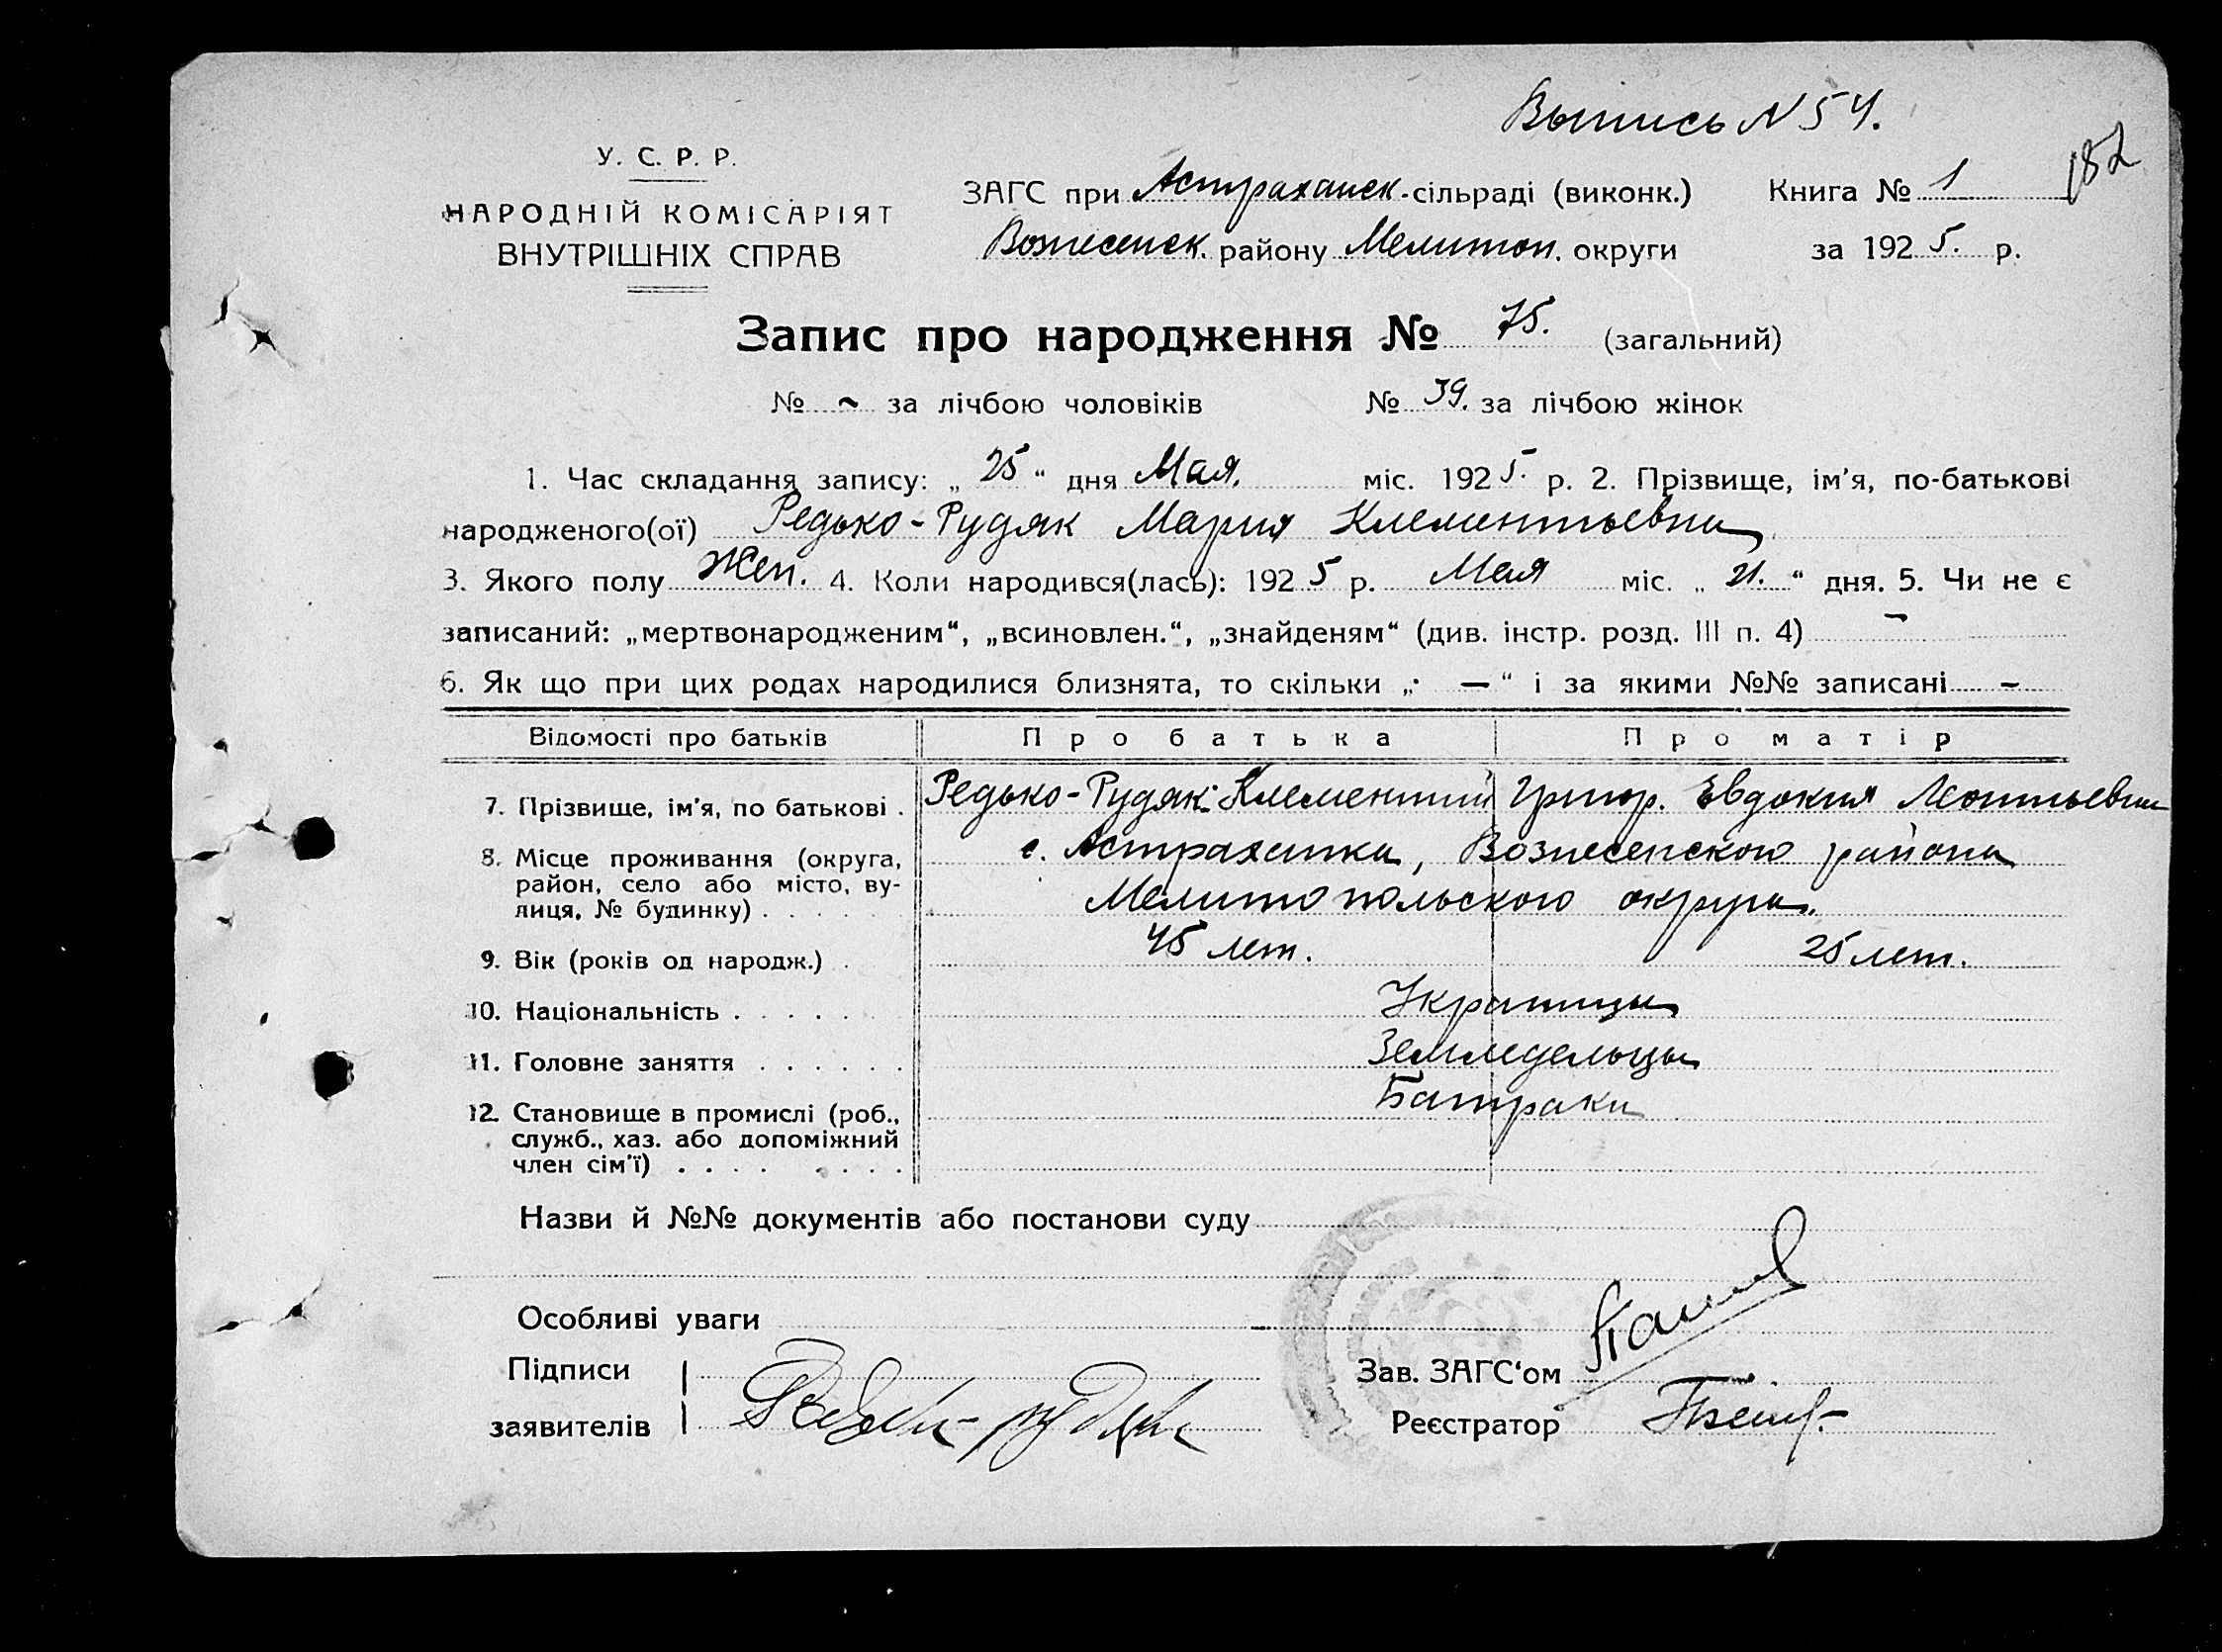 Выпись N 54.
182
У. С. Р. Р.
НАРОДНІЙ КОМІСАРІЯТ
ВНУТРІШНІХ СПРАВ
ЗАГС при Астраханск-сільраді (виконк.) Книга № 1
Вознесенск. району Мелитоп. округи за 1925. р.
Запис про народження № 75. (загальний)
№ ~ за лічбою чоловіків № 39. за лічбою жінок
1. Час складання запису: „25“ дня Мая. міс. 1925. р. 2. Прізвище, ім'я, по-батькові
народженого(ої) Редько-Рудяк Мария Клементьевна
3. Якого полу Жен. 4. Коли народився(лась): 1925 р. Мая міс. „21.“ дня. 5. Чи не є
записаний: „мертвонародженим“, „всиновлен.“, „знайденям“ (див. інстр. розд. III п. 4) –
6. Як що при цих родах народилися близнята, то скільки „—“ і за якими №№ записані –
Відомості про батьків Про батька Про матір
7. Прізвище, ім'я, по батькові . Редько-Рудяк Клементий Григор. Евдокия Леонтьевна
8. Місце проживання (округа, с. Астраханка, Вознесенского района
район, село або місто, ву-
лиця, № будинку) . . . . . . Мелитопольского округа.
9. Вік (років од народж.) . 45 лет. 25 лет.
10. Національність . . . . . . Украинцы
11. Головне заняття . . . . . . Земледельцы
12. Становище в промислі (роб., Батраки
служб., хаз. або допоміжний
член сім'ї) . . . . . . . .
Назви й №№ документів або постанови суду
Особливі уваги –
Підписи
заявителів Редько-Рудяк
Зав. ЗАГС'ом
Реєстратор